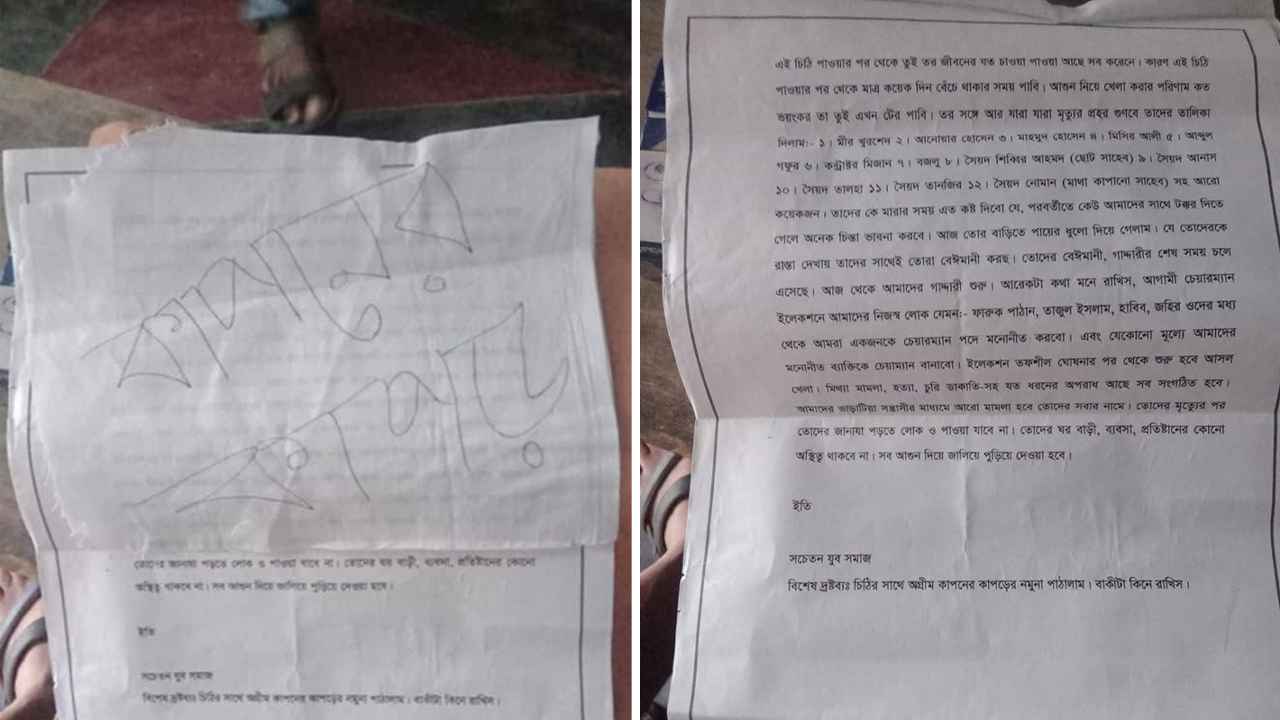 কাপনের
কাপড়
তোদের জানাযা পড়তে লোক ও পাওয়া যাবে না। তোদের ঘর বাড়ী, ব্যবসা, প্রতিষ্টানের কোনো
অস্থিত্ব থাকবে না। সব আগুন দিয়ে জালিয়ে পুড়িয়ে দেওয়া হবে।
ইতি
সচেতন যুব সমাজ
বিশেষ দ্রষ্টব্যঃ চিঠির সাথে অগ্রীম কাপনের কাপড়ের নমুনা পাঠালাম। বাকীটা কিনে রাখিস।
এই চিঠি পাওয়ার পর থেকে তুই তর জীবনের যত চাওয়া পাওয়া আছে সব করেনে। কারণ এই চিঠি
পাওয়ার পর থেকে মাত্র কয়েক দিন বেঁচে থাকার সময় পাবি। আগুন নিয়ে খেলা করার পরিণাম কত
ভয়ংকর তা তুই এখন টের পাবি। তর সঙ্গে আর যারা যারা মৃত্যুর প্রহর গুণবে তাদের তালিকা
দিলাম:- ১। মীর খুরশেদ ২। আনোয়ার হোসেন ৩। মাহমুদ হোসেন ৪। মিসির আলী ৫। আব্দুল
গফুর ৬। কন্ট্রাক্টর মিজান ৭। বজলু ৮। সৈয়দ শিব্বির আহমদ (ছোট সাহেব) ৯। সৈয়দ আনাস
১০। সৈয়দ তালহা ১১। সৈয়দ তানজির ১২। সৈয়দ নোমান (মাথা কাপানো সাহেব) সহ আরো
কয়েকজন। তাদের কে মারার সময় এত কষ্ট দিবো যে, পরবর্তীতে কেউ আমাদের সাথে টক্কর দিতে
গেলে অনেক চিন্তা ভাবনা করবে। আজ তোর বাড়িতে পায়ের ধুলো দিয়ে গেলাম। যে তোদেরকে
রাস্তা দেখায় তাদের সাথেই তোরা বেঈমানী করছ। তোদের বেঈমানী, গাদ্দারীর শেষ সময় চলে
এসেছে। আজ থেকে আমাদের গাদ্দারী শুরু। আরেকটা কথা মনে রাখিস, আগামী চেয়ারম্যান
ইলেকশনে আমাদের নিজস্ব লোক যেমন:- ফারুক পাঠান, তাজুল ইসলাম, হাবিব, জহির ওদের মধ্য
থেকে আমরা একজনকে চেয়ারম্যান পদে মনোনীত করবো। এবং যেকোনো মূল্যে আমাদের
মনোনীত ব্যাক্তিকে চেয়াম্যান বানাবো। ইলেকশন তফশীল ঘোষনার পর থেকে শুরু হবে আসল
খেলা। মিথ্যা মামলা, হত্যা, চুরি ডাকাতি-সহ যত ধরনের অপরাধ আছে সব সংগঠিত হবে।
আমাদের ভাড়াটিয়া সন্ত্রাসীর মাধ্যমে আরো মামলা হবে তোদের সবার নামে। তোদের মৃত্যের পর
তোদের জানাযা পড়তে লোক ও পাওয়া যাবে না। তোদের ঘর বাড়ী, ব্যবসা, প্রতিষ্টানের কোনো
অস্থিত্ব থাকবে না। সব আগুন দিয়ে জালিয়ে পুড়িয়ে দেওয়া হবে।
ইতি
সচেতন যুব সমাজ
বিশেষ দ্রষ্টব্যঃ চিঠির সাথে অগ্রীম কাপনের কাপড়ের নমুনা পাঠালাম। বাকীটা কিনে রাখিস।